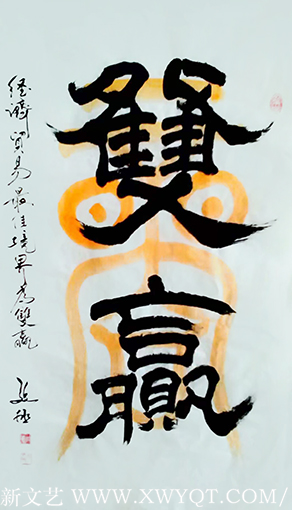 雙贏
經濟貿易最佳境界為雙贏
新文艺 WWW.XWYQT.COM/